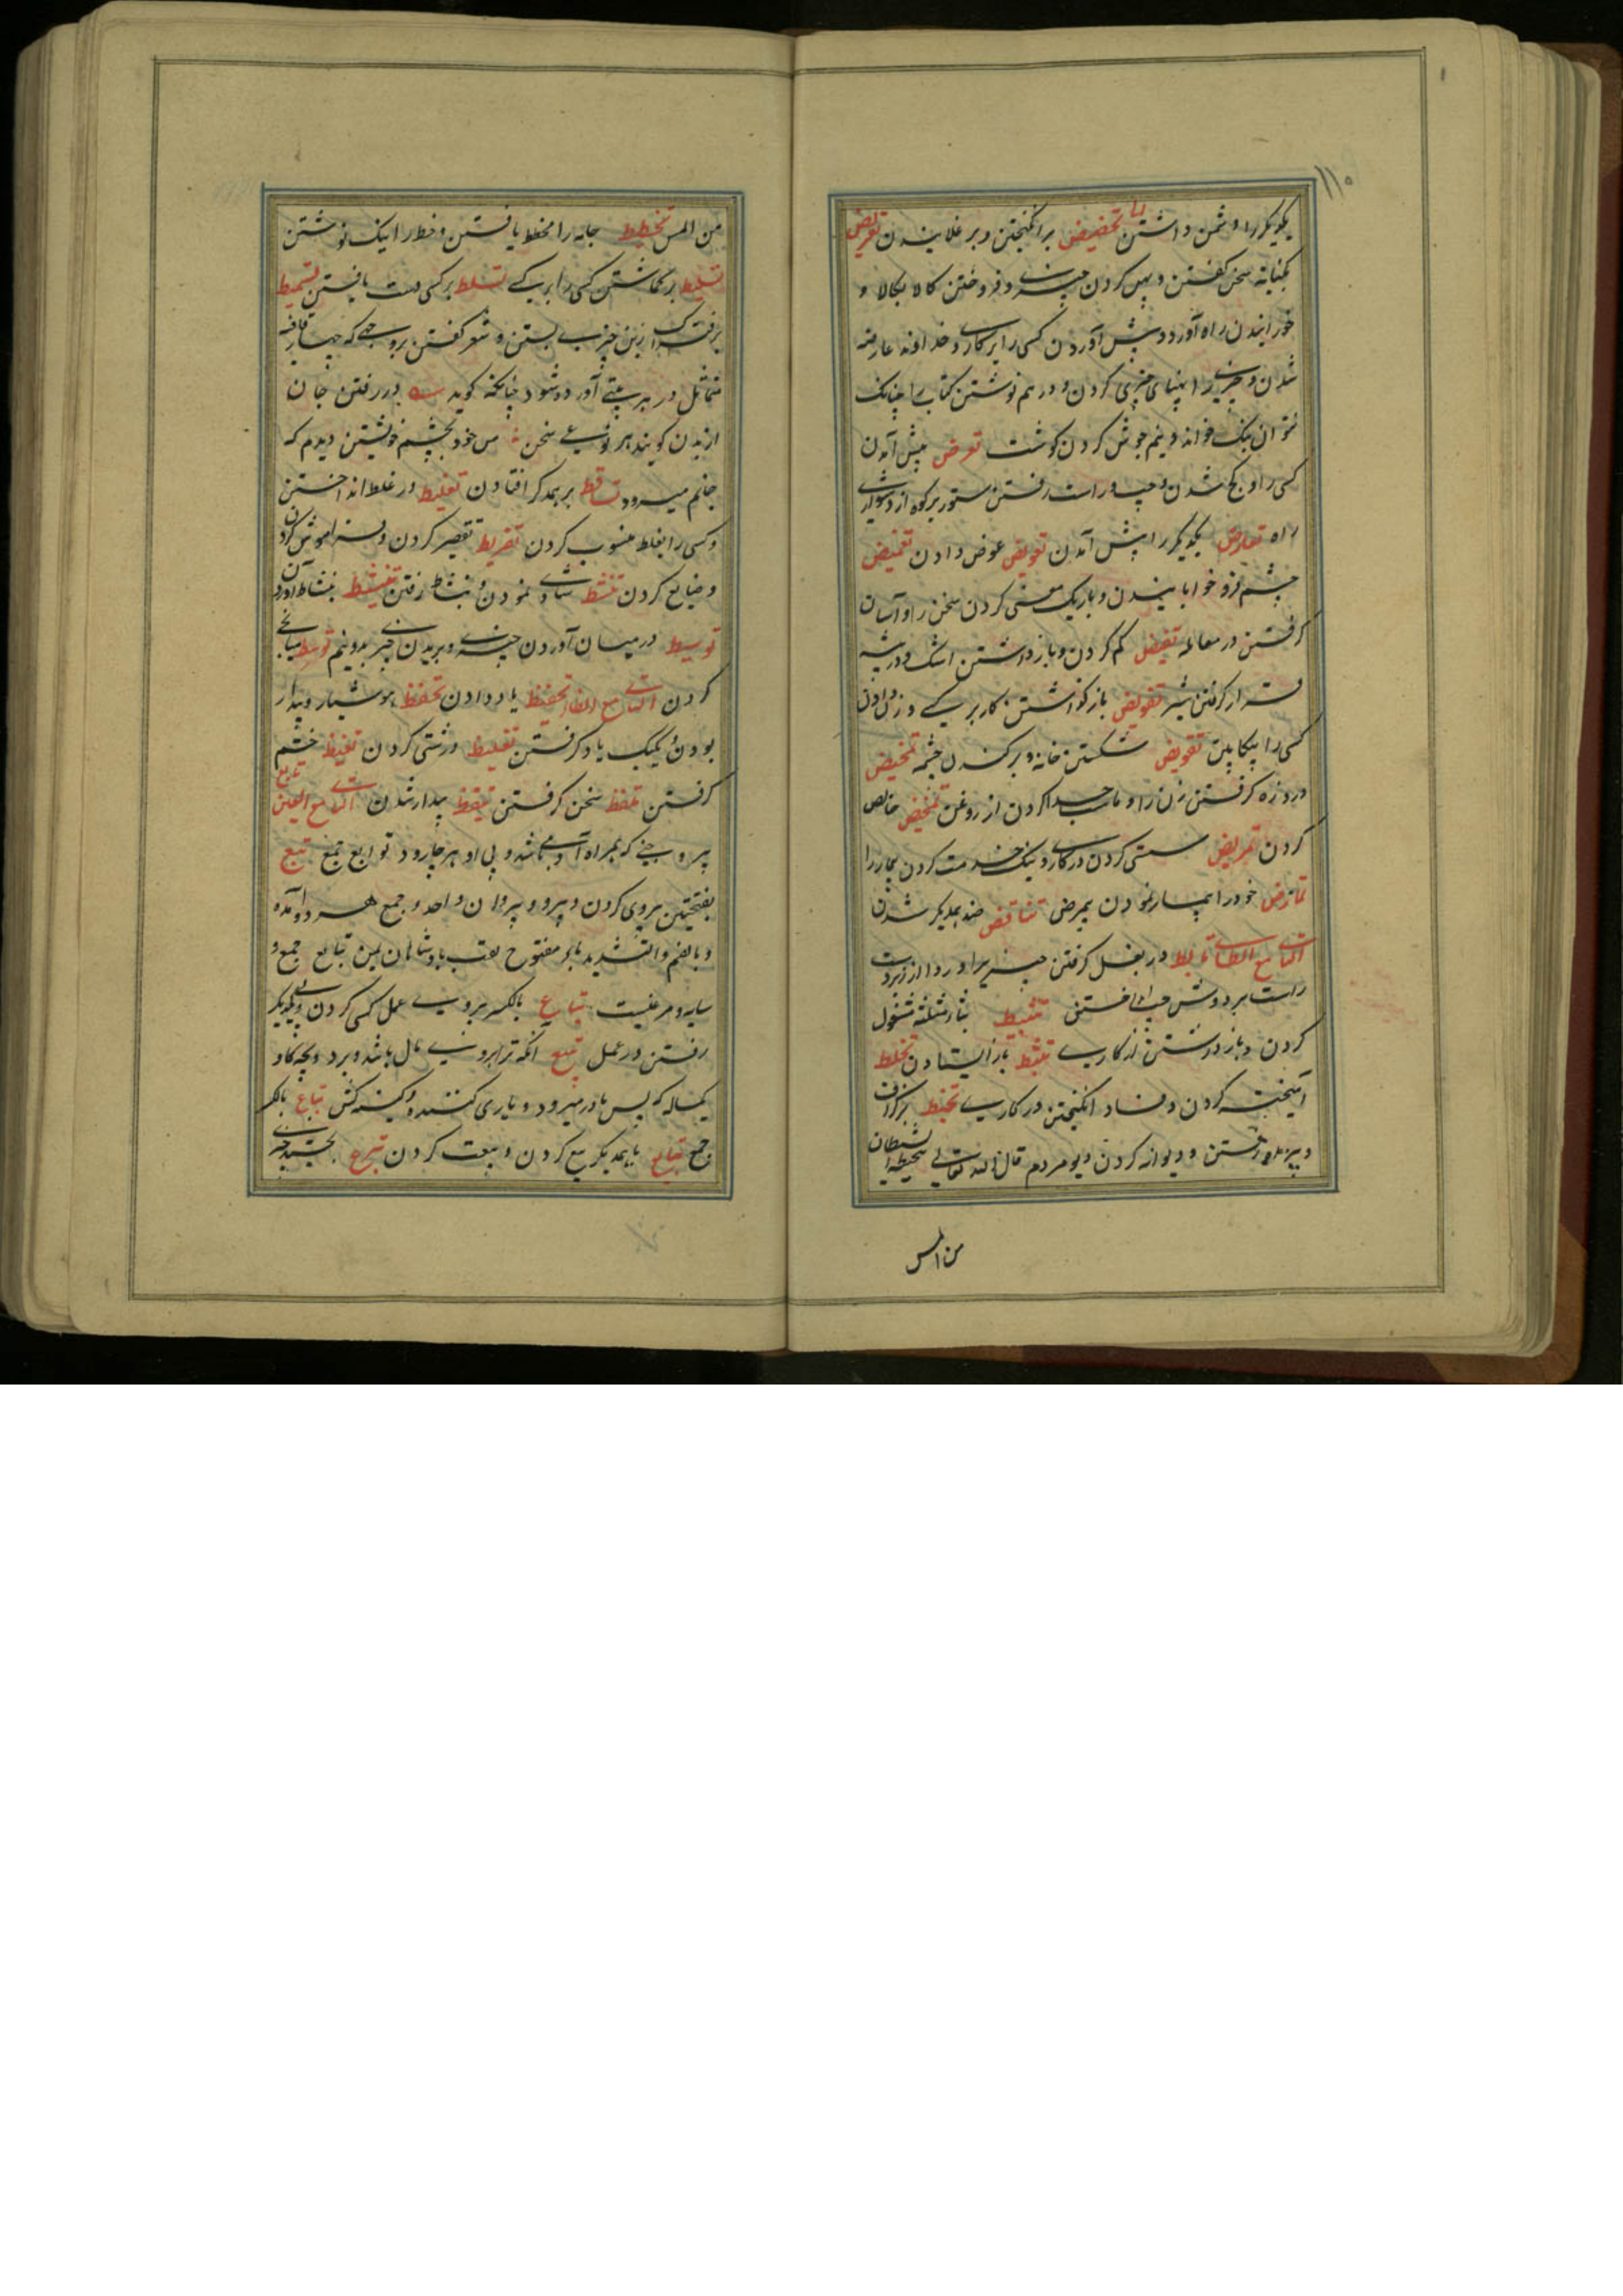 یکدیگر را دشمن داشتن تحضیض برانگیختن و برغلانیدن تعریض
بکنایه سخن گفتن و پهن کردن چیزی و فروختن کالا بکالا و
خورانیدن راه آورد و پیش آوردن کسی را بر کاری و خداوند عارضه
شدن و چیزی را پهنای چیزی کردن و درهم نوشتن کتاب را چنانک
نتوان نیک خواند و نیم جوش کردن گوشت تعرض پیش آمدن
کسی را و کج شدن و چپ و راست رفتن ستور بر کوه از دشواری
راه تعارض یکدیگر را پیش آمدن تعویض عوض دادن تغمیض
چشم فرو خوابانیدن و باریک معنی کردن سخن را و آسان
گرفتن در معامله تغیض کم کردن و بازداشتن اشک و در بیشه
قرار گرفتن شیر تفویض باز گذاشتن کار بر کسی و زن دادن
کسی را بیکابین تقویض شکستن خانه و برکندن خیمه تمخیض
درد زه گرفتن زن را و ماست جدا کردن از روغن تمحیض خالص
کردن تمریض سستی کردن در کاری و نیک خدمت کردن بیمار را
تمارض خود را بیمار نمودن بیمرض تناقض ضد یکدیگر شدن
التاء مع الطاء تابط در بغل گرفتن چیزی را و ردا از زیر دست
راست بر دوش چپ انداختن تثبیط بثاء مثلثه مشغول
کردن و باز داشتن از کاری تثبط باز ایستادن تخلیط
آمیخته کردن و فساد انگیختن در کاری تخبط بزگزاف
و بیراه رفتن و دیوانه کردن دیو مردم قال الله تعالی یتخبطه الشیطان
من المس
من المس تخطیط جامه را مخطط بافتن و خط را نیک نوشتن
تسلیط برگماشتن کسی را بر کسی تسلط بر کسی دست یافتن تسمیط
بر فتراک زین چیزی بستن و شعر گفتن بروجهی که چهار قافیه
متماثل در هر بیتی آورده شود چنانکه گوید در رفتن جان
از بدن گویند هر نوعی سخن من خود بچشم خویشتن دیدم که
جانم میرود تساقط بر یکدیگر افتادن تغلیط در غلط انداختن
و کسی را بغلط منسوب کردن تفریط تقصیر کردن و فراموش کردن
و ضایع کردن تنشط شادی نمودن و بنشاط رفتن تنشیط بنشاط آوردن
توسیط در میان آوردن چیزی و بریدن چیزی بدو نیم توسط میانجی
کردن التاء مع الظاء تحفیظ یاد دادن تحفظ هوشیار و بیدار
بودن و یکیک یاد گرفتن تغلیظ درشتی کردن تغیظ خشم
گرفتن تلفظ سخن گرفتن تیقظ بیدار شدن التاء مع العین تابع
پیرو و جنی که همراه آدمی باشد و پی او هر جا رود توابع جمع تبع
بفتحتین پیروی کردن و پیرو و پیروان واحد و جمع هر دو آمده
و بالضم و التشدید باء مفتوح لقب پادشاهان یمن تبابع جمع و
سایه و مرغیست تباع بالکسر پیروی عمل کسی کردن و پی یکدیگر
رفتن در عمل تبیع آنکه ترا بروی مال باشد و برد و بچه گاو
یکساله که پس مادر میرود و یاری کننده و کینه کش تباع بالکسر
جمع تبایع با یکدیگر بیع کردن و بیعت کردن تبرع بخشیدن چیزی